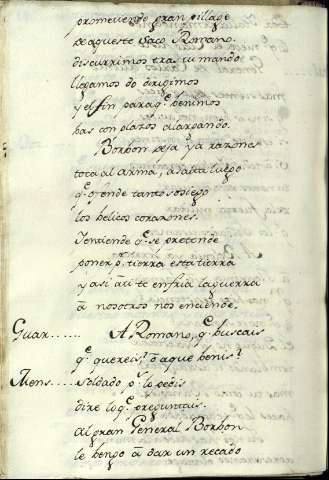 promeuendo gran pillage
de aqueste saco Romano.
discurrimos tras tu mando
llegamos do dirigimos
y el fin paraq̃ benimos
bas con plazos alargando.
Borbon deja ya razona
toca al arma, asalta luego
q̃ ofende tanto sosiego
los belicos corazones.
Y entiende q̃ se pretende
poner p.r tierra esta tierra
y asi a ti te enfria la guerra
a nosotros nos enciende.
Guar...... A Romano, q̃ buscais
q̃ quereis? o a que benis?
Mens..... Soldado p.s lo pedis
dire lo q̃ preguntais.
al gran General Borbon
le bengo a dar un recado